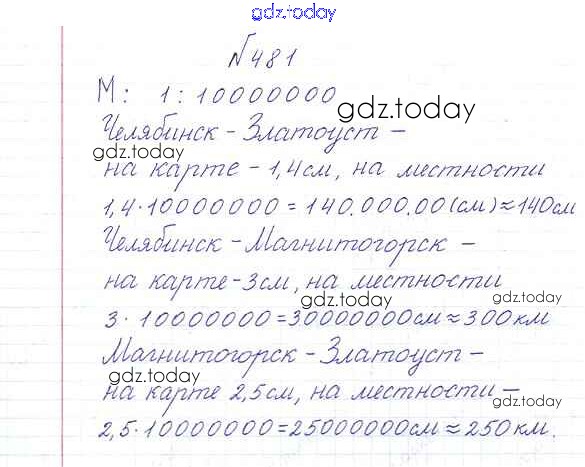 gdz.today
№481
М: 1:10000000
gdz.today
Челябинск-Златоуст-
gdz.today
на карте-1,4см, на местности
1,4·10000000=140.000.00(см)≈140см
Челябинск-Магнитогорск-
на карте-3см, на местности
gdz.today
gdz.today
3·10000000=30000000см≈300км
Магнитогорск-Златоуст-
gdz.today
на карте 2,5см, на местности-
gdz.today
2,5·10000000=25000000см≈250км.